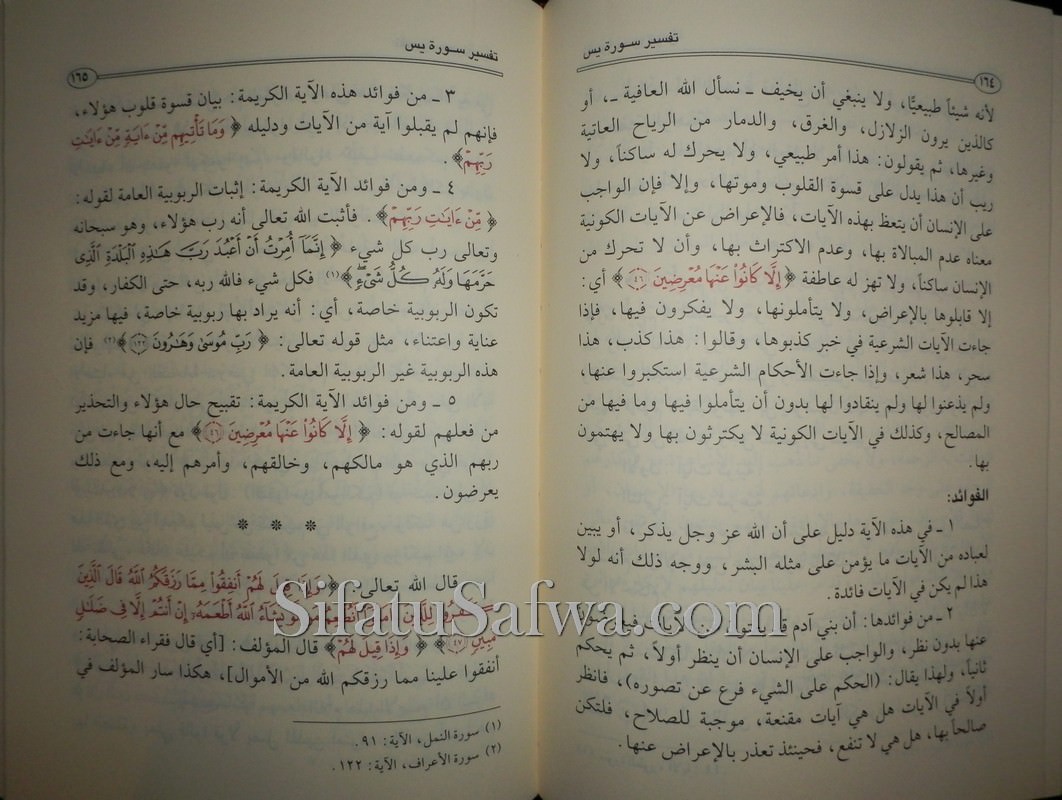 تفسير سورة يس
١٦٤
لأنه شيئاً طبيعيًّا، ولا ينبغي أن يخيف ـ نسأل الله العافية ـ، أو
كالذين يرون الزلازل، والغرق، والدمار من الرياح العاتية
وغيرها، ثم يقولون: هذا أمر طبيعي، ولا يحرك له ساكناً، ولا
ريب أن هذا يدل على قسوة القلوب وموتها، وإلا فإن الواجب
على الإنسان أن يتعظ بهذه الآيات، فالإعراض عن الآيات الكونية
معناه عدم المبالاة بها، وعدم الاكتراث بها، وأن لا تحرك من
الإنسان ساكناً، ولا تهز له عاطفة ﴿إِلَّا كَانُوا۟ عَنْهَا مُعْرِضِينَ ٤٦﴾ أي:
إلا قابلوها بالإعراض، ولا يتأملونها، ولا يفكرون فيها، فإذا
جاءت الآيات الشرعية في خبر كذبوها، وقالوا: هذا كذب، هذا
سحر، هذا شعر، وإذا جاءت الأحكام الشرعية استكبروا عنها،
ولم يذعنوا لها ولم ينقادوا لها بدون أن يتأملوا فيها وما فيها من
المصالح، وكذلك في الآيات الكونية لا يكترثون بها ولا يهتمون
بها.
الفوائد:
١ ـ في هذه الآية دليل على أن الله عز وجل يذكر، أو يبين
لعباده من الآيات ما يؤمن على مثله البشر، ووجه ذلك أنه لولا
هذا لم يكن في الآيات فائدة.
٢ ـ من فوائدها: أن بني آدم قد الآيات
عنها بدون نظر، والواجب على الإنسان أن ينظر أولاً، ثم يحكم
ثانياً، ولهذا يقال: (الحكم على الشيء فرع عن تصوره)، فانظر
أولاً في الآيات هل هي آيات مقنعة، موجبة للصلاح، فلتكن
صالحاً بها، هل هي لا تنفع، فحينئذ تعذر بالإعراض عنها.
تفسير سورة يس
١٦٥
٣ ـ من فوائد هذه الآية الكريمة: بيان قسوة قلوب هؤلاء،
فإنهم لم يقبلوا آية من الآيات ودليله ﴿وَمَا تَأْتِيهِم مِّنْ ءَايَةٍ مِّنْ ءَايَٰتِ
رَبِّهِمْ﴾.
٤ ـ ومن فوائد الآية الكريمة: إثبات الربوبية العامة لقوله:
﴿مِّنْ ءَايَٰتِ رَبِّهِمْ﴾. فأثبت الله تعالى أنه رب هؤلاء، وهو سبحانه
وتعالى رب كل شيء ﴿إِنَّمَآ أُمِرْتُ أَنْ أَعْبُدَ رَبَّ هَٰذِهِ الْبَلْدَةِ الَّذِى
حَرَّمَهَا وَلَهُۥ كُلُّ شَىْءٍ﴾(١) فكل شيء فالله ربه، حتى الكفار، وقد
تكون الربوبية خاصة، أي: أنه يراد بها ربوبية خاصة، فيها مزيد
عناية واعتناء، مثل قوله تعالى: ﴿رَبِّ مُوسَىٰ وَهَٰرُونَ ١٢٢﴾(٢) فإن
هذه الربوبية غير الربوبية العامة.
٥ ـ ومن فوائد الآية الكريمة: تقبيح حال هؤلاء والتحذير
من فعلهم لقوله: ﴿إِلَّا كَانُوا۟ عَنْهَا مُعْرِضِينَ ٤٦﴾ مع أنها جاءت من
ربهم الذي هو مالكهم، وخالقهم، وأمرهم إليه، ومع ذلك
يعرضون.
* * *
قال الله تعالى: ﴿وَإِذَا قِيلَ لَهُمْ أَنفِقُوا۟ مِمَّا رَزَقَكُمُ اللَّهُ قَالَ الَّذِينَ
كَفَرُوا۟ لِلَّذِينَ ءَامَنُوٓا۟ أَنُطْعِمُ مَن لَّوْ يَشَآءُ اللَّهُ أَطْعَمَهُۥٓ إِنْ أَنتُمْ إِلَّا فِى ضَلَٰلٍ
مُّبِينٍ ٤٧﴾ ﴿وَإِذَا قِيلَ لَهُمْ﴾ قال المؤلف: [أي قال فقراء الصحابة:
أنفقوا علينا مما رزقكم الله من الأموال]، هكذا سار المؤلف في
(١) سورة النمل، الآية: ٩١.
(٢) سورة الأعراف، الآية: ١٢٢.
SifatuSafwa.com